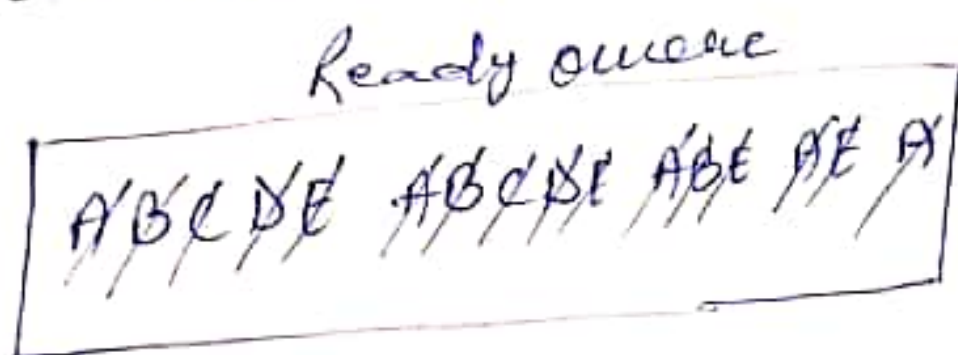 Ready queue
A B C D E A B C D E A B E A E A